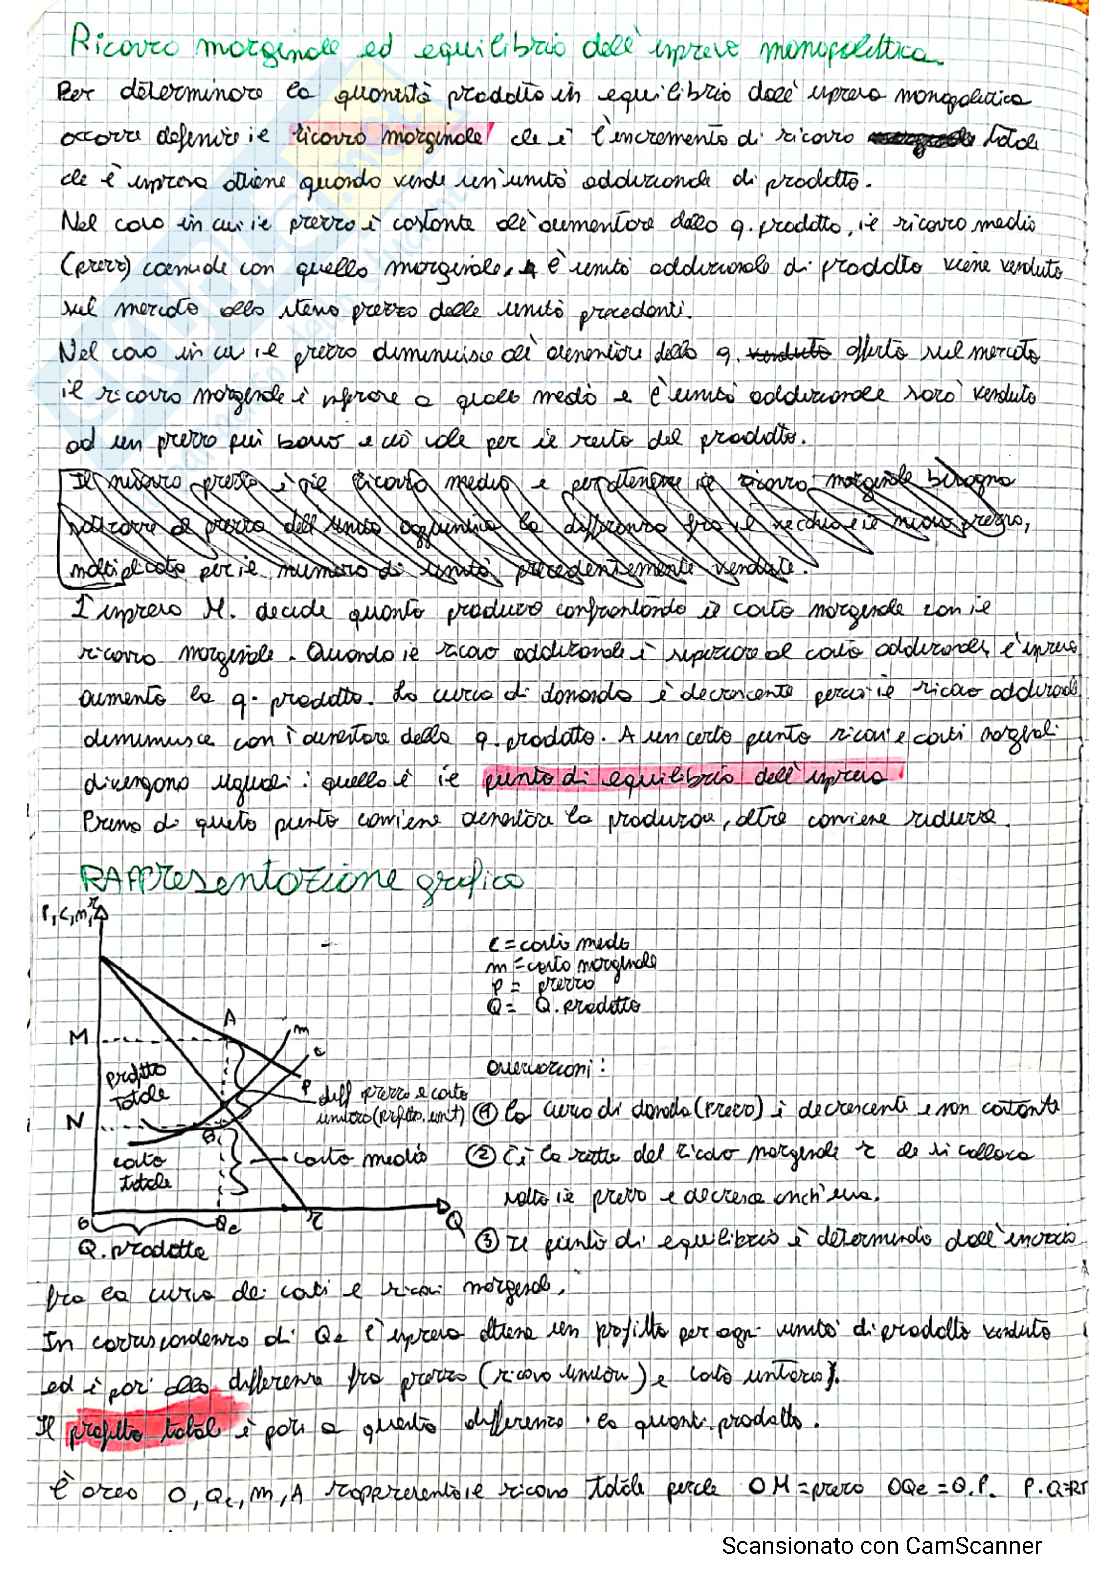 Ricavo marginale ed equilibrio dell'impresa monopolistica
Per determinare la quantità prodotta in equilibrio dall'impresa monopolistica
occorre definire il ricavo marginale che è l'incremento di ricavo totale
che l'impresa ottiene quando vende un'unità addizionale di prodotto.
Nel caso in cui il prezzo è costante all'aumentare della q. prodotta, il ricavo medio
(prezzo) coincide con quello marginale, l'unità addizionale di prodotto viene venduta
sul mercato allo stesso prezzo delle unità precedenti.
Nel caso in cui il prezzo diminuisce all'aumentare della q. venduta offerta sul mercato
il ricavo marginale è inferiore a quello medio e l'unità addizionale sarà venduta
ad un prezzo più basso e ciò vale per il resto del prodotto.
Il nuovo prezzo è il ricavo medio e per ottenere il ricavo marginale bisogna
sottrarre al prezzo dell'unità aggiuntiva la differenza fra il vecchio e il nuovo prezzo,
moltiplicato per il numero di unità precedentemente vendute.
L'impresa M. decide quanto produrre confrontando il costo marginale con il
ricavo marginale. Quando il ricavo addizionale è superiore al costo addizionale, l'impresa
aumenta la q. prodotta. La curva di domanda è decrescente perciò il ricavo addizionale
diminuisce con l'aumentare della q. prodotta. A un certo punto ricavi e costi marginali
divengono uguali: quello è il punto di equilibrio dell'impresa
Prima di questo punto conviene aumentare la produzione, oltre conviene ridurre.
RAPPresentazione grafica
P, c, m, r
c = costo medio
m = costo marginale
P = prezzo
Q = Q. prodotta
M
A
m
c
P
profitto
totale
diff prezzo e costo
unitario (profitto unit)
N
B
costo
totale
costo medio
0
Qe
r
Q
Q. prodotta
Osservazioni:
① la curva di domanda (prezzo) è decrescente e non costante
② C'è la retta del ricavo marginale r che si colloca
sotto il prezzo e decresce anch'essa.
③ Il punto di equilibrio è determinato dall'incrocio
fra la curva dei costi e ricavi marginali.
In corrispondenza di Qe l'impresa ottiene un profitto per ogni unità di prodotto venduto
ed è pari alla differenza fra prezzo (ricavo unitario) e costo unitario.
Il profitto totale è pari a questa differenza · la quant. prodotta.
L'area O, Qe, M, A rappresenta il ricavo totale perché OM = prezzo OQe = Q.P. P.Q=RT
Scansionato con CamScanner